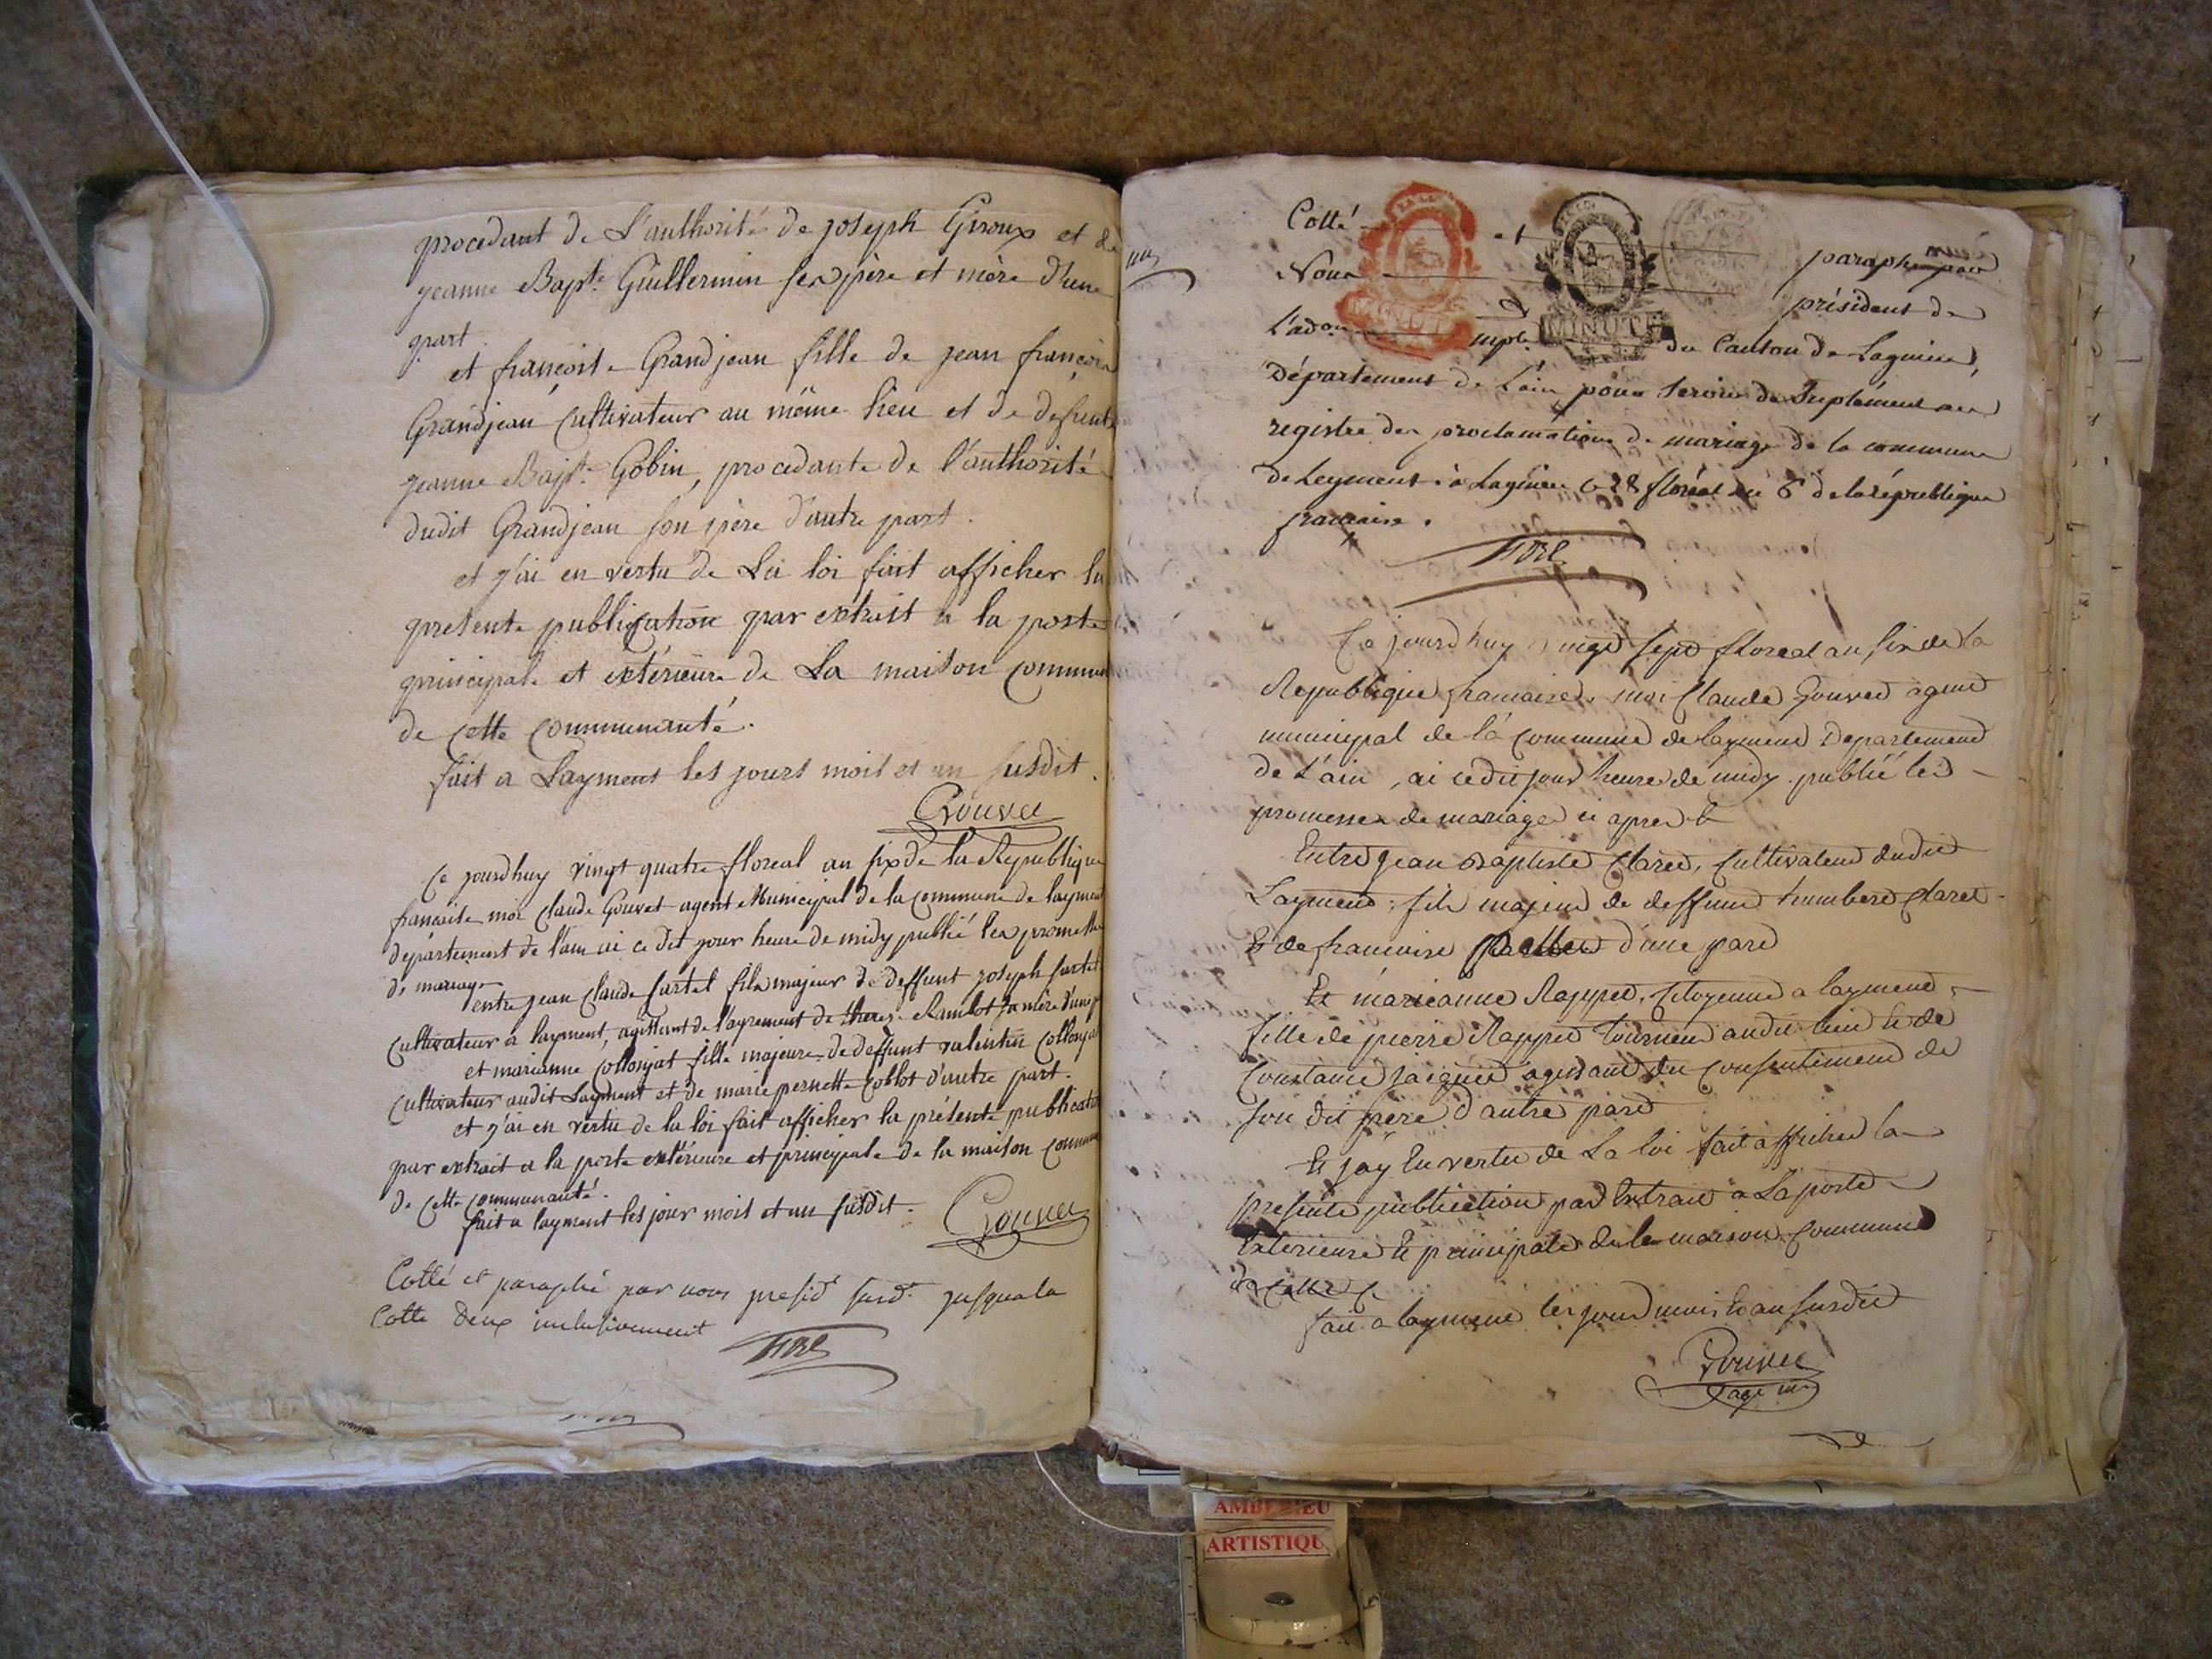 procedant de L'authorité de joseph Giroux et de
jeanne Bapte Guillermin ses père et mère d'une
part.
et françoise Grandjean fille de jean françois
Grandjean cultivateur au même lieu et de defunte
jeanne Bapte Gobin, procedante de l'authorité
dudit Grandjean son père d'autre part.
et j'ai en vertu de La loi fait afficher la
presente publication par extrait a la porte
principale et extérieure de La maison commune
de cette communauté.
fait a Layment les jours mois et an susdit.
Gouvet
Ce jourdhuy vingt quatre floreal an six de la Republique
francaise moi Claude Gouvet agent Municipal de la commune de layment
département de l'ain ai ce dit jour heure de midy publié les promesse
de mariage
entre jean Claude fils majeur de deffunt joseph
cultivateur a layment, agissant de l'agrement de Rambot sa mère d'une p
et marianne Collonjat fille majeure de deffunt valentin Collonjat
cultivateur audit Layment et de marie pernette Collot d'autre part.
et j'ai en vertu de la loi fait afficher la présente publication
par extrait a la porte extérieure et principale de la maison commune
de cette communauté.
fait a layment les jour mois et an susdit.
Gouvet
Cotté et paraphé par nous presidt susdt jusqua la
Cotte deux inclusivement
Cotté et paraphé par
Nous président de
L'adon mple du Canton de Lagnieu,
Département de L'ain pour servir de Suplément au
registre des proclamations de mariage de la commune
de Leyment à Lagnieu le 28 floréal an 6e de la république
francaise.
MINUTE
MINUTE
Ce jourd'huy vingt sept floreal an six de la
Republique francaise, moi Claude Gouvet agent
municipal de la commune de layment Departement
de L'ain, ai cedit jour heure de midy publié les
promesses de mariage ci apres
Entre jean Baptiste Claret, cultivateur dudit
Layment, fils majeur de deffunt humbert Claret
Et de francoise d'une part
Et marianne Rappet, Citoyenne a layment,
fille de pierre Rappet tourneur audit lieu et de
Constance jaiguier agissant du consentement de
son dit père d'autre part
Et jay En vertu de La loi fait afficher la
presente publication par Extrait a La porte
Exterieure Et principale de la maison Commune
de Cette Ce
fait a layment les jour mois Et an susdit
Gouvet
agt mal
AMBERIEU
ARTISTIQU